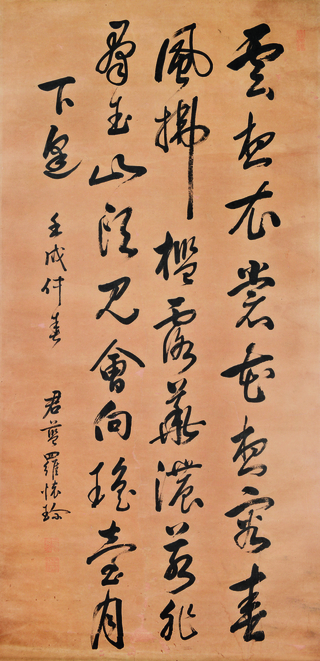 雲想衣裳花想容春
風拂檻露華濃若非
羣玉山頭見會向瑤臺月
下逢 壬戌仲春 君藎羅懷珍